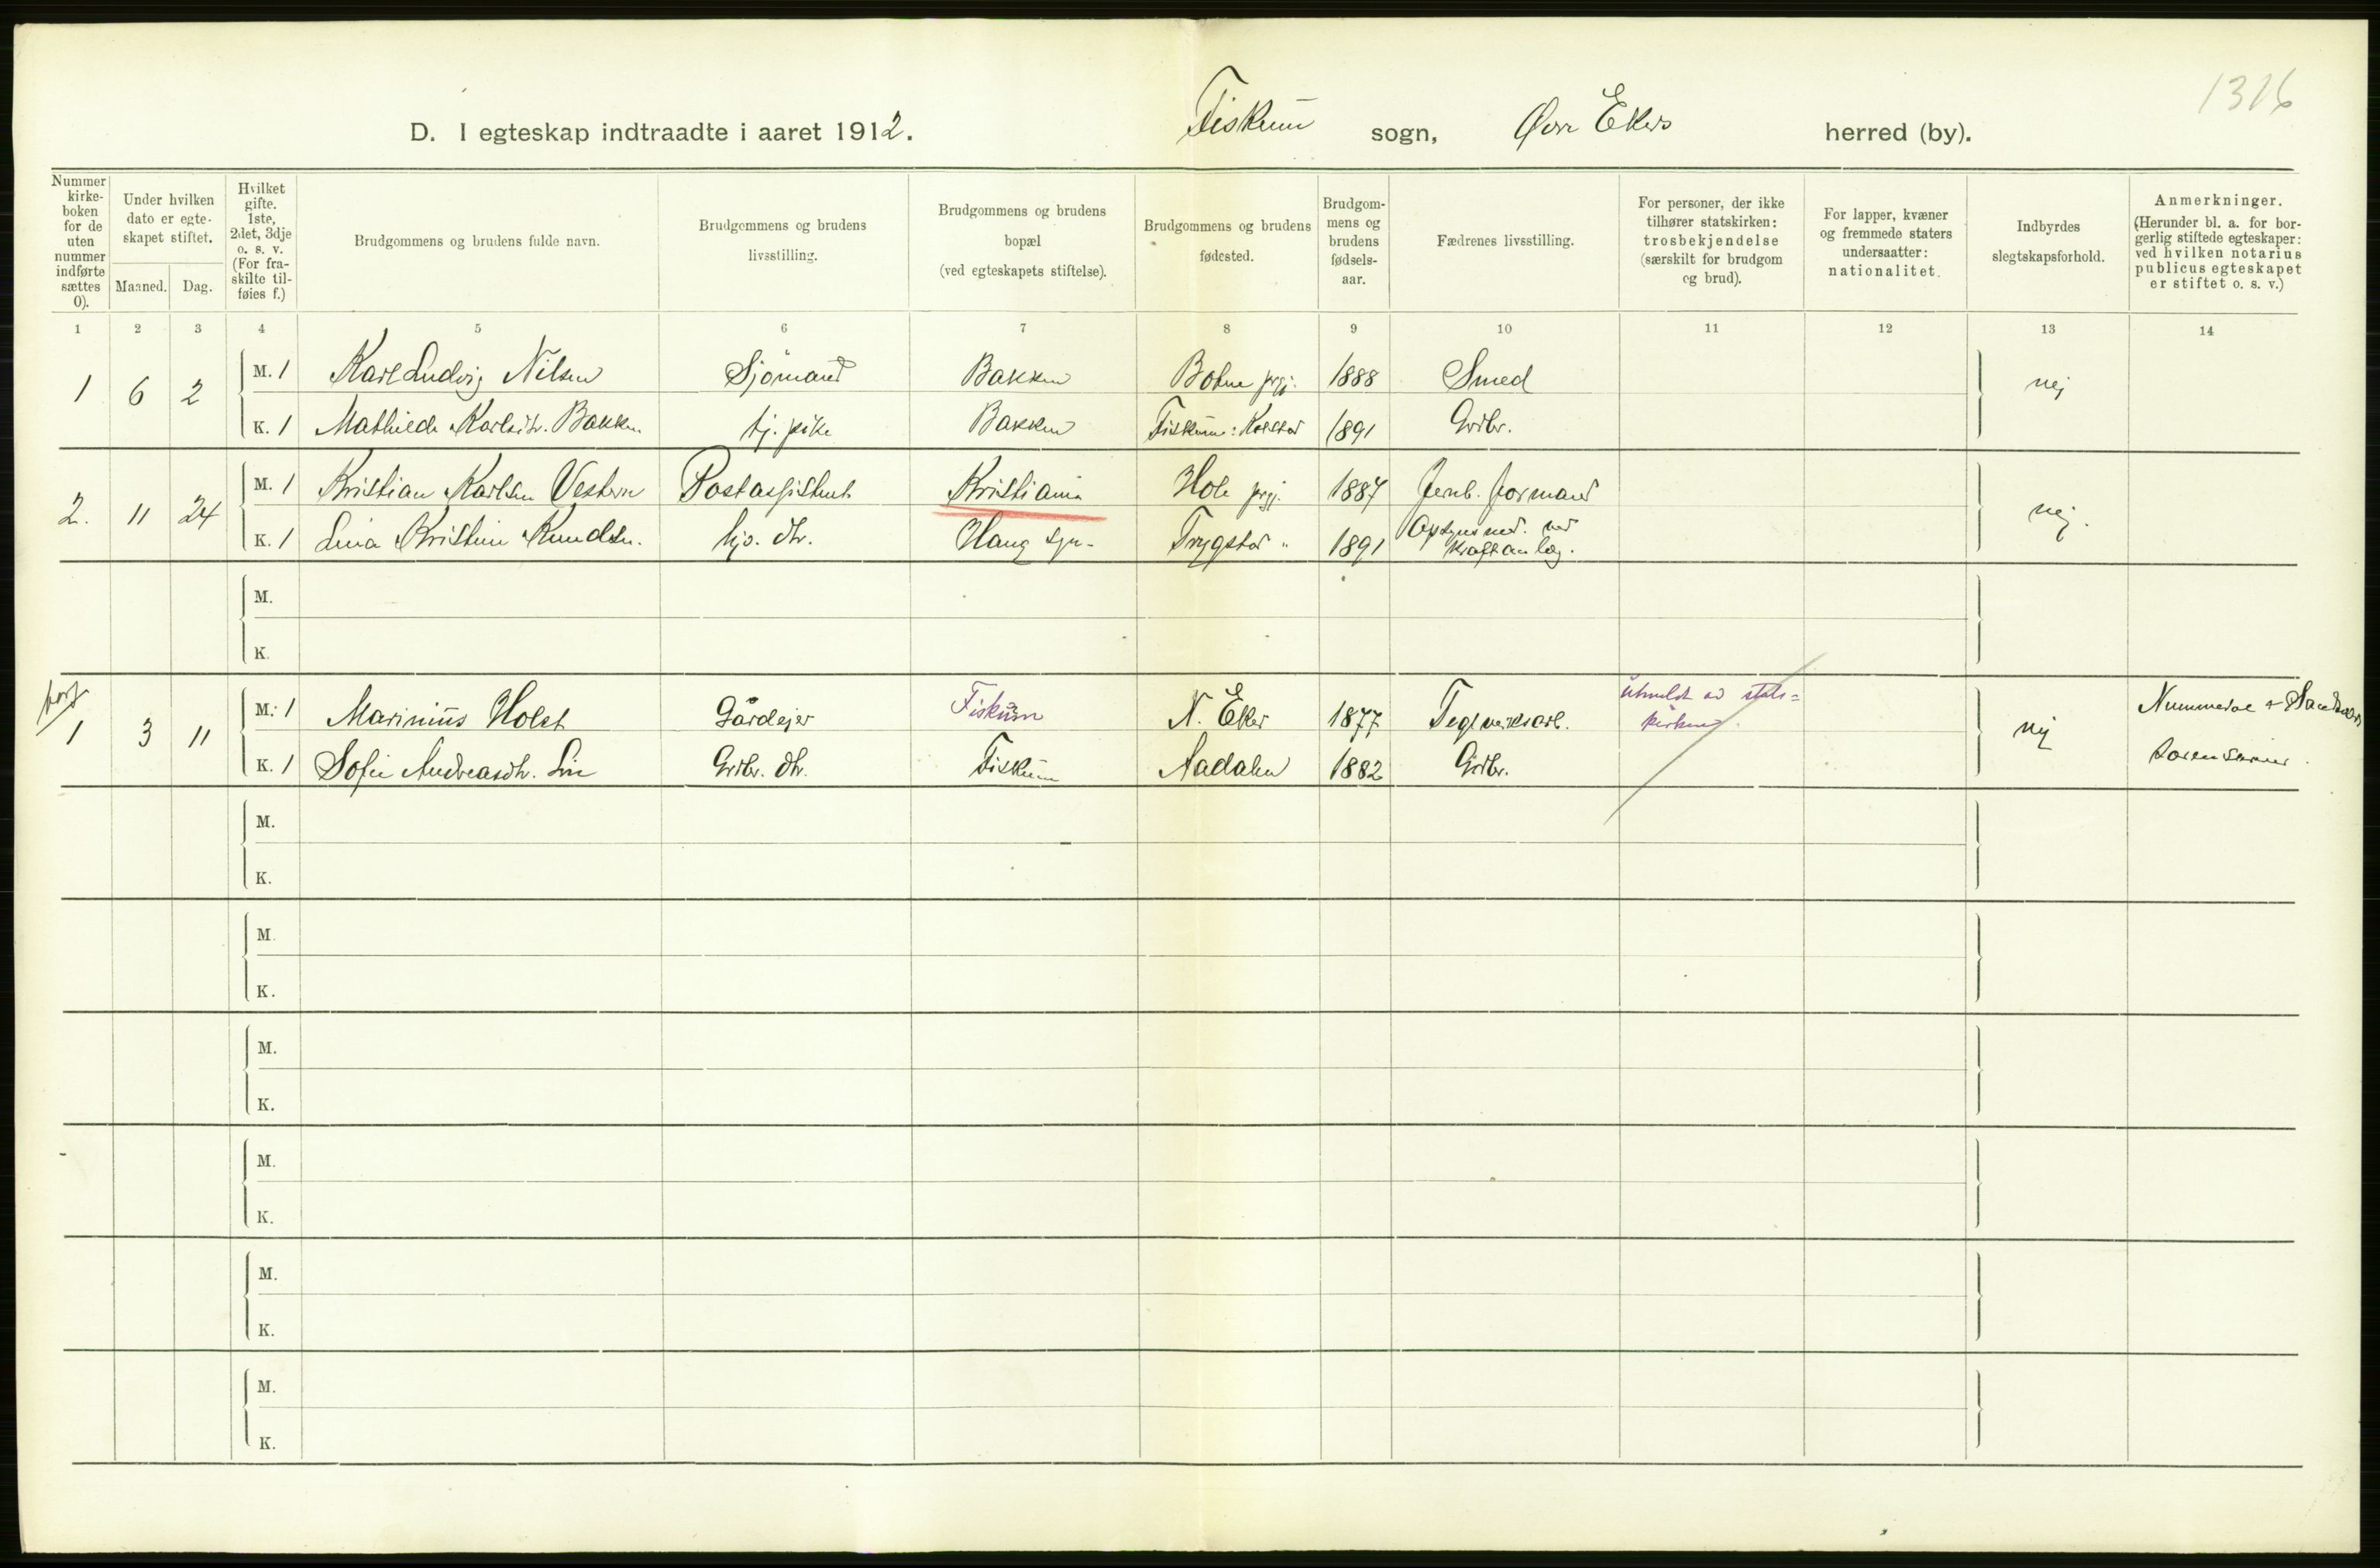 1316
D. I egteskap indtraadte i aaret 1912. Fiskum sogn, Øvre Ekers herred (by).
Nummer kirke-boken for de uten nummer indførte sættes 0).
Under hvilken dato er egte-skapet stiftet.
Maaned. Dag.
Hvilket gifte. 1ste, 2det, 3dje o. s. v. (For fra-skilte til-føies f.)
Brudgommens og brudens fulde navn.
Brudgommens og brudens livsstilling.
Brudgommens og brudens bopæl (ved egteskapets stiftelse).
Brudgommens og brudens fødested.
Brudgom-mens og brudens fødsels-aar.
Fædrenes livsstilling.
For personer, der ikke tilhører statskirken: trosbekjendelse (særskilt for brudgom og brud).
For lapper, kvæner og fremmede staters undersaatter: nationalitet.
Indbyrdes slegtskapsforhold.
Anmerkninger. (Herunder bl. a. for bor-gerlig stiftede egteskaper: ved hvilken notarius publicus egteskapet er stiftet o. s. v.)
1 2 3 4 5 6 7 8 9 10 11 12 13 14
1 6 2 M. 1 Karl Ludvig Nilsen Sjømand Bakken Botne prgj. 1888 Smed nej
K. 1 Mathilde Karlsdtr. Bakken tj. pike Bakken Fiskum: Kolstad 1891 Grdbr.
2. 11 24 M. 1 Kristian Karlsen Vestern Postassistent Kristiania Hole prgj. 1887 Jernb. formand nej.
K. 1 Lina Kristine Knudsen. hjv. dtr. Haug sgn. Trygstad " 1891 Opsynsmd. ved
kraftanlæg.
M.
K.
1 3 11 M. 1 Marinius Holet Gårdejer Fiskum N. Eker 1877 Teglverksarb. utmeldt av stats=
kirken. nej Nummedal & Sandsværs
sorenskriver.
K. 1 Sofie Andreasdtr. Lie Grdbr. dtr. Fiskum Aadalen 1882 Grdbr.
M.
K.
M.
K.
M.
K.
M.
K.
M.
K.
M.
K.